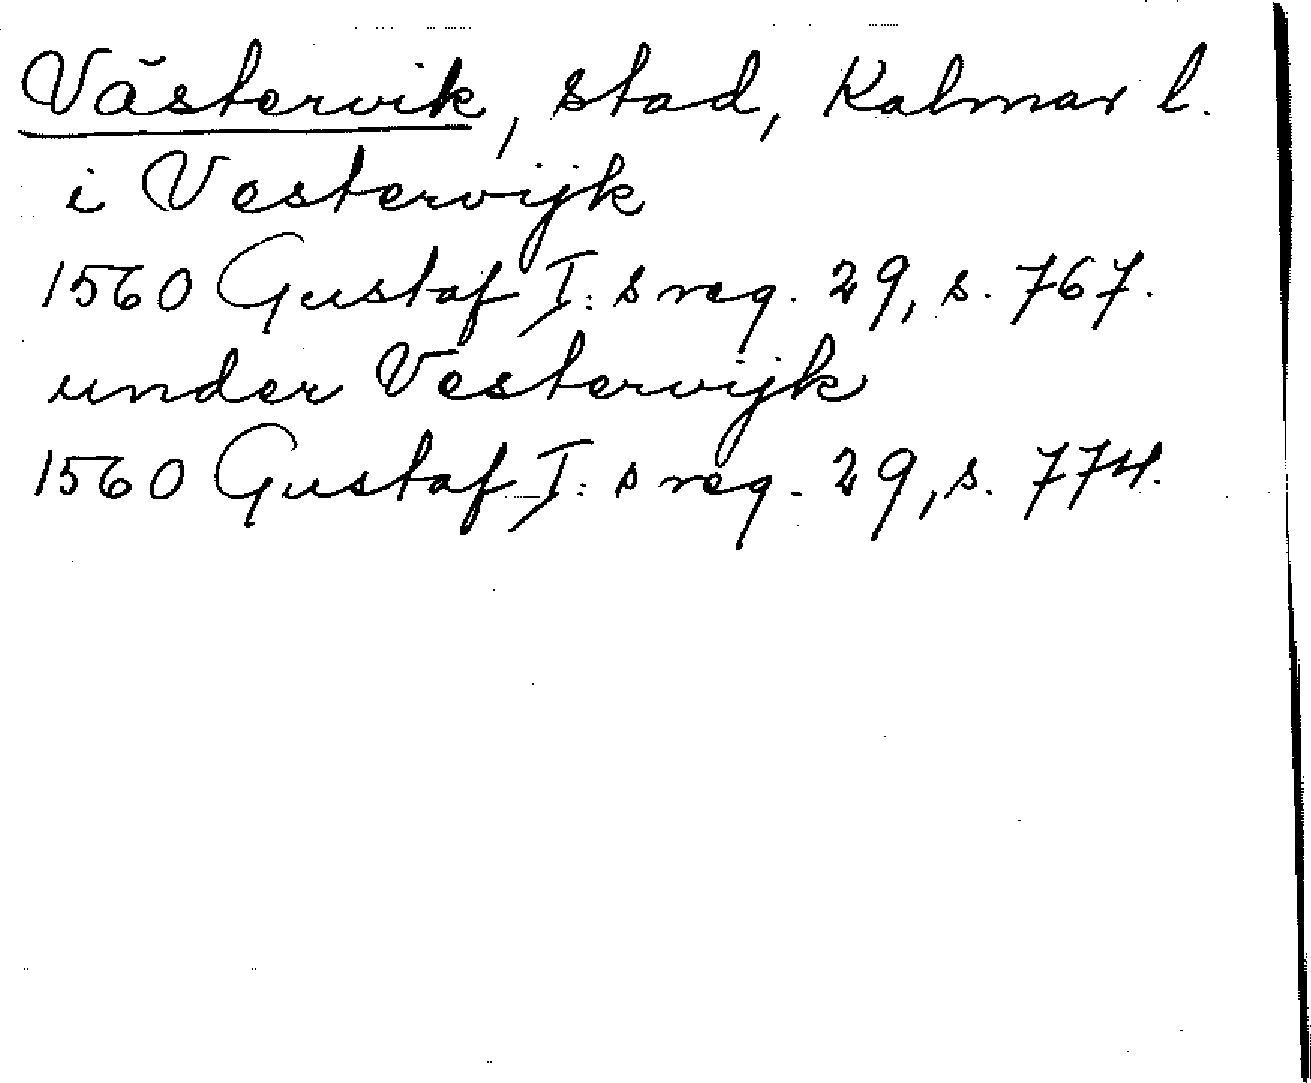 Västervik, stad, Kalmar l.
i Vestervijk
1560 Gustaf I:s reg. 29, s. 767.
under Vestervijk
1560 Gustaf I:s reg. 29, s. 774.